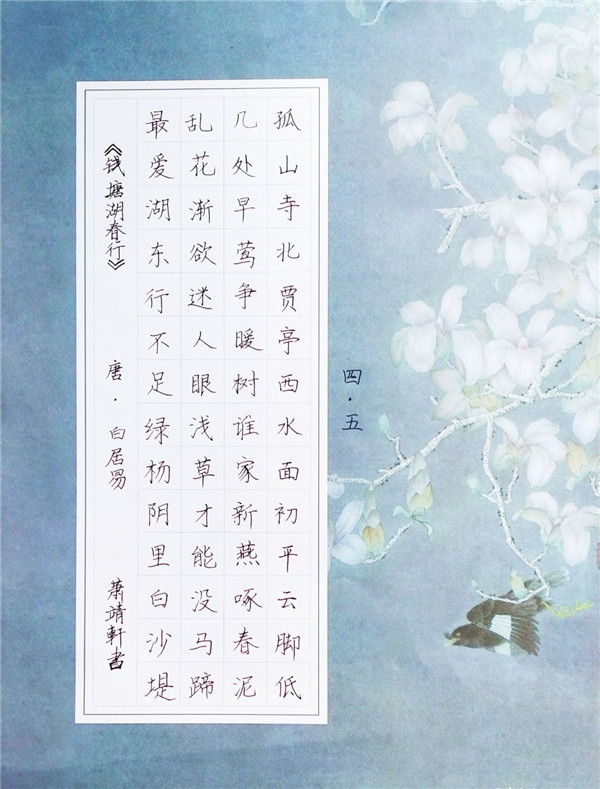 孤山寺北贾亭西水面初平云脚低
几处早莺争暖树谁家新燕啄春泥
乱花渐欲迷人眼浅草才能没马蹄
最爱湖东行不足绿杨阴里白沙堤
《钱塘湖春行》 唐·白居易 萧靖軒书
四·五